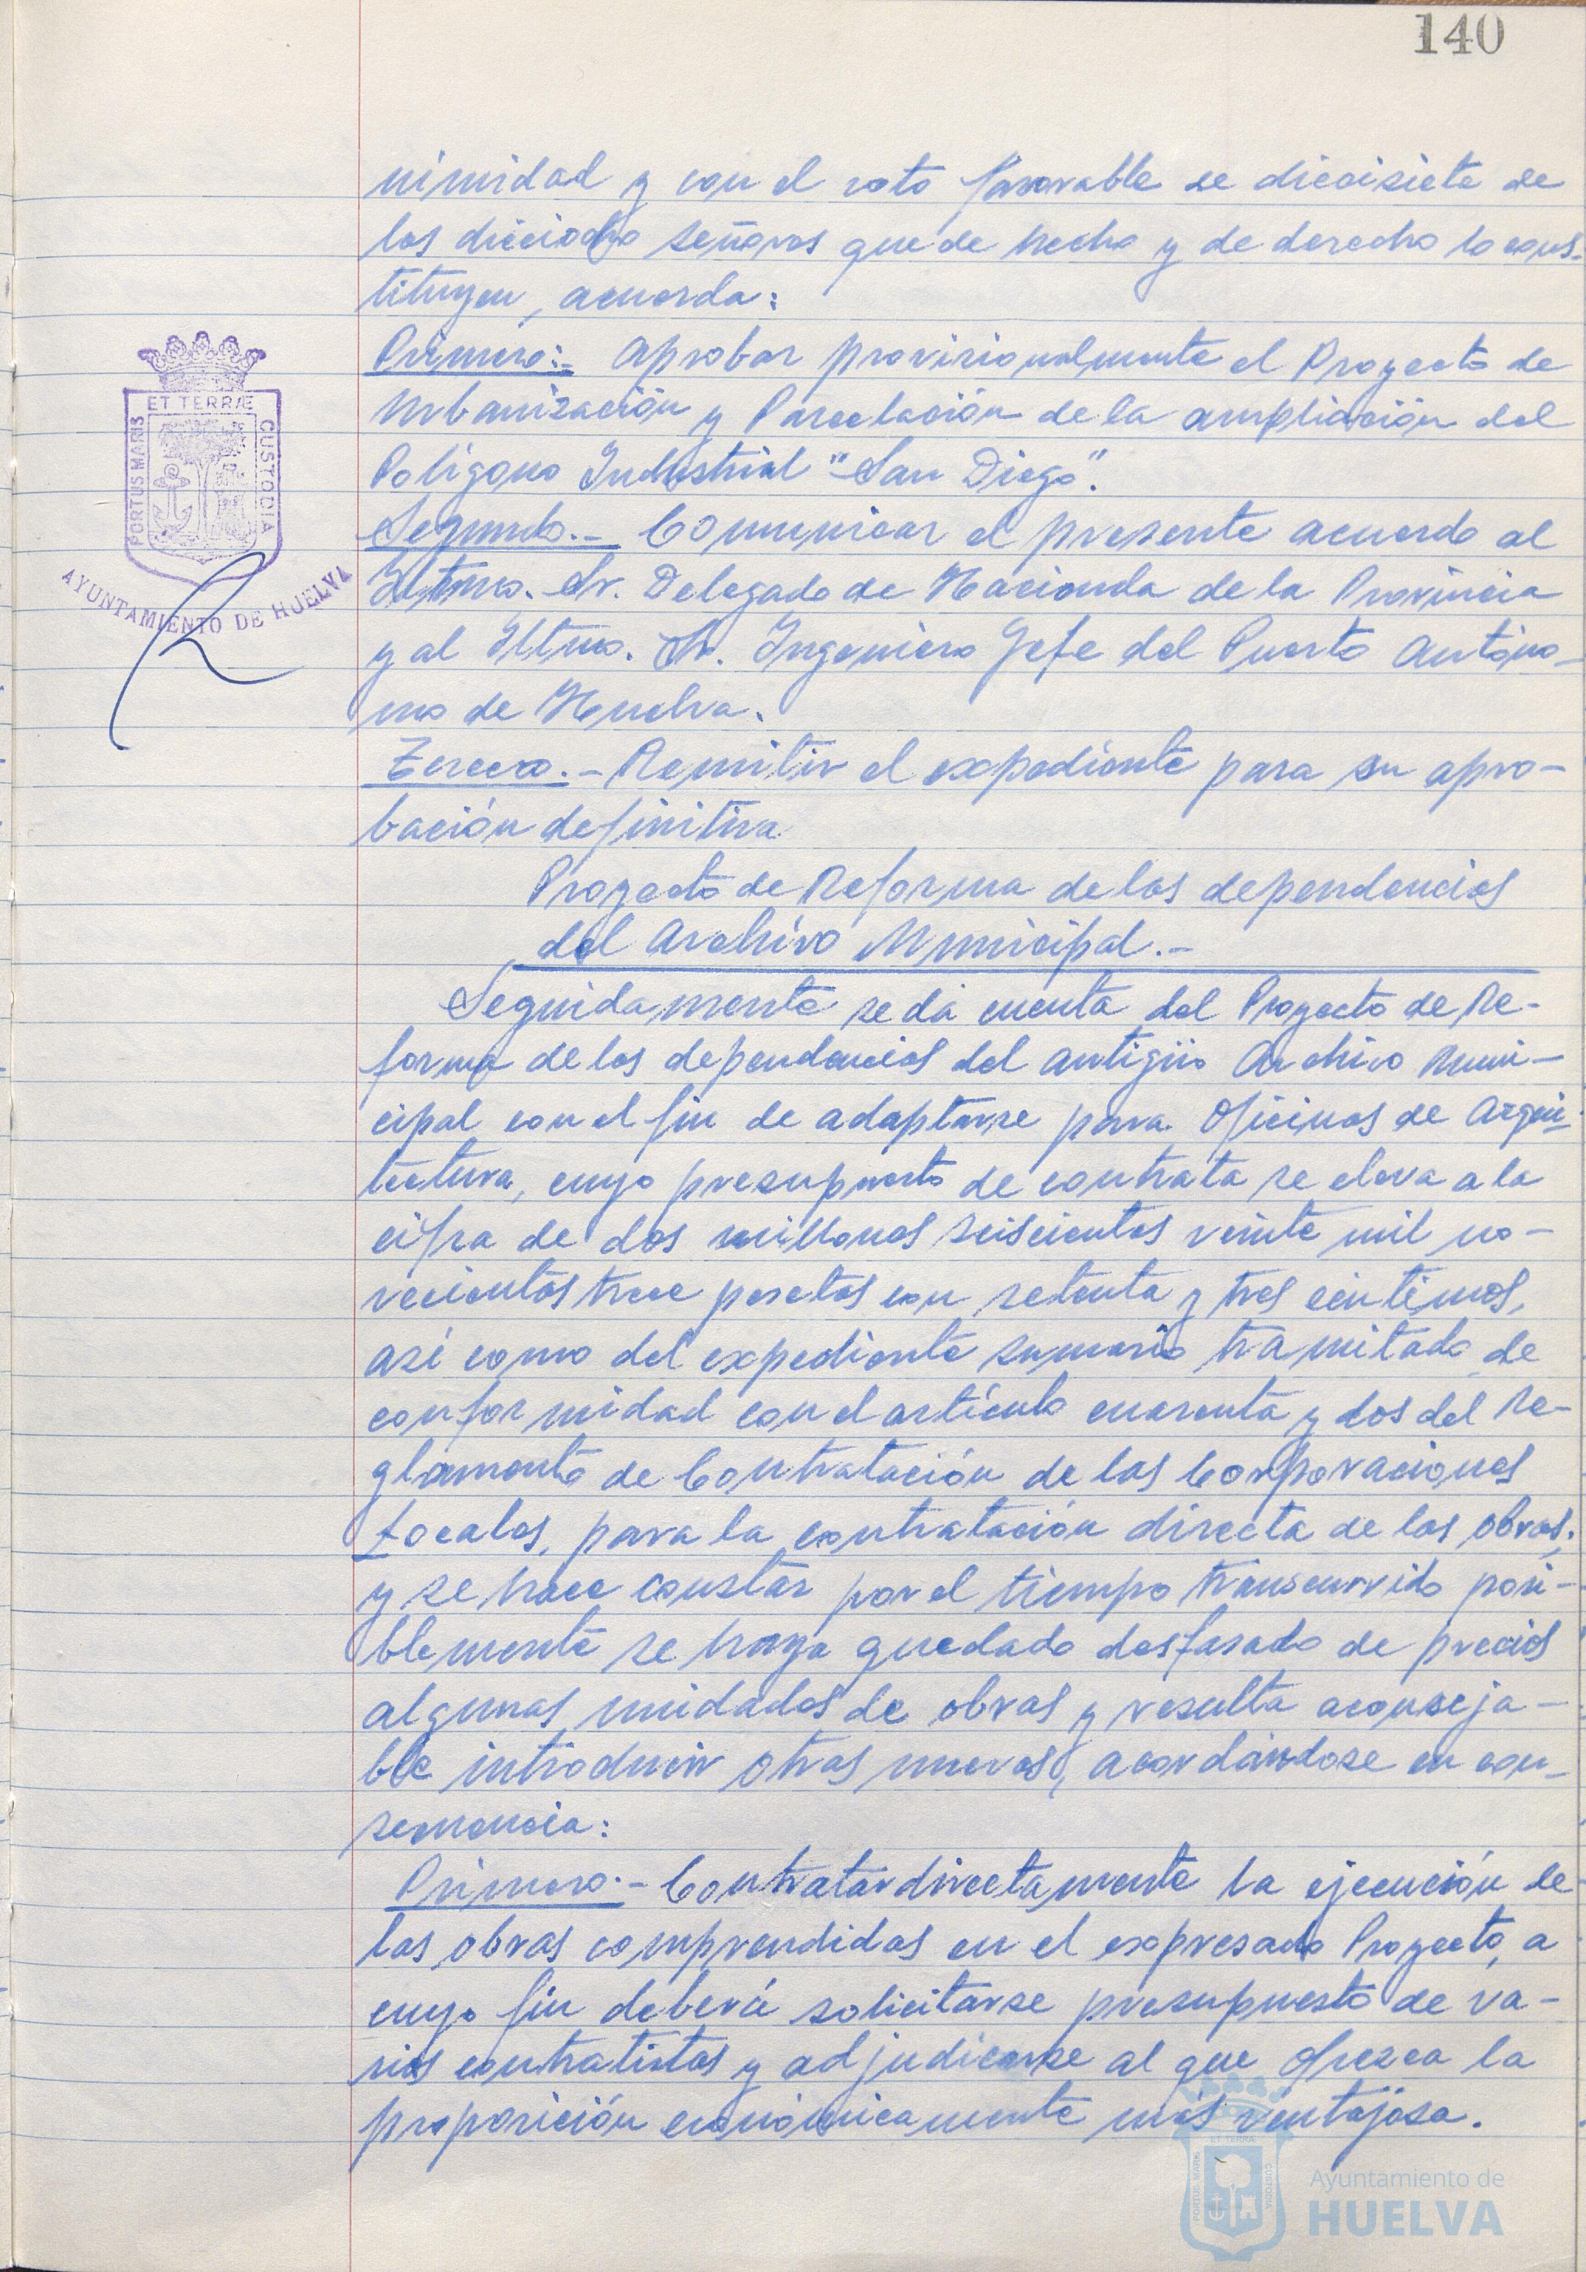 140
nimidad y con el voto favorable de diecisiete de
los dieciocho señores que de hecho y de derecho lo cons-
tituyen, acuerda:
Primero:- Aprobar provisionalmente el Proyecto de
Urbanización y Parcelación de la ampliación del
Polígono Industrial "San Diego".
Segundo.- Comunicar el presente acuerdo al
Iltmo. Sr. Delegado de Hacienda de la Provincia
y al Iltmo. Sr. Ingeniero Jefe del Puerto Autóno-
mo de Huelva.
Tercero.- Remitir el expediente para su apro-
bación definitiva
Proyecto de Reforma de las dependencias
del Archivo Municipal.-
Seguidamente se dá cuenta del Proyecto de Re-
forma de las dependencias del antigüo Archivo Muni-
cipal con el fin de adaptarse para Oficinas de Arqui-
tectura, cuyo presupuesto de contrata se eleva a la
cifra de dos millones seiscientas veinte mil no-
vecientas trece pesetas con setenta y tres céntimos,
así como del expediente sumario tramitado de
conformidad con el artículo cuarenta y dos del Re-
glamento de Contratación de las Corporaciones
Locales, para la contratación directa de las obras,
y se hace constar por el tiempo transcurrido posi-
blemente se haya quedado desfasado de precios
algunas unidades de obras y resulta aconseja-
ble introducir otras nuevas, acordándose en con-
secuencia:
Primero.- Contratar directamente la ejecución de
las obras comprendidas en el expresado Proyecto, a
cuyo fin deberá solicitarse presupuesto de va-
rios contratistas y adjudicarse al que ofrezca la
proposición económicamente más ventajosa.
PORTUS MARIS
ET TERRÆ
CUSTODIA
AYUNTAMIENTO DE HUELVA
PORTUS MARIS
ET TERRA
CUSTODIA
Ayuntamiento de
HUELVA